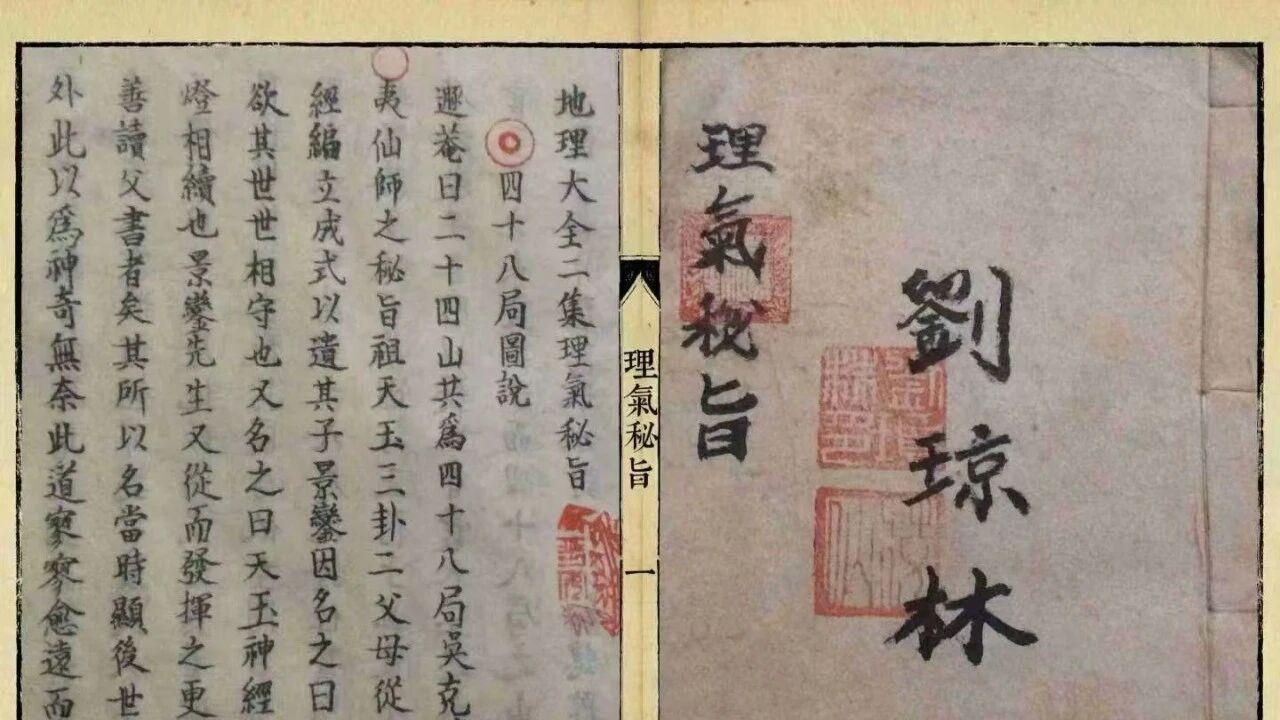 劉琼林
理氣秘旨
理氣秘旨
一
地理大全二集理氣秘旨
四十八局圖說
遯菴曰二十四山共為四十八局吳克
夷仙師之秘旨祖天玉三卦二父母從
經編立成式以遺其子景鸞因名之曰
欲其世世相守也又名之曰天玉神經
燈相續也景鸞先生又從而發揮之更
善讀父書者矣其所以名當時顯後世
外此以爲神奇無奈此道寥寥愈遠而